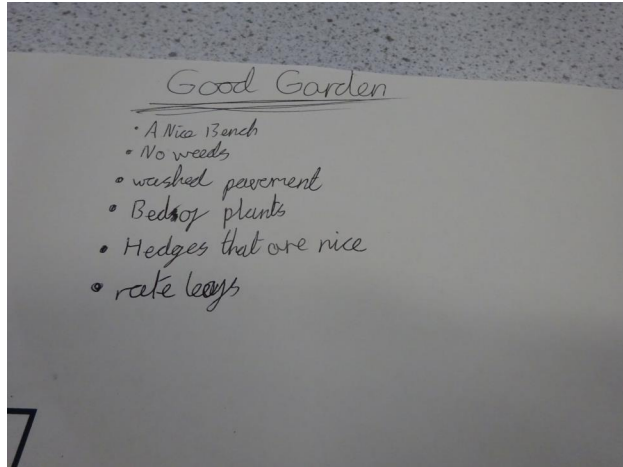 Good Garden
• A Nice Bench
• No weeds
• washed pavement
• Beds of plants
• Hedges that are nice
• rate